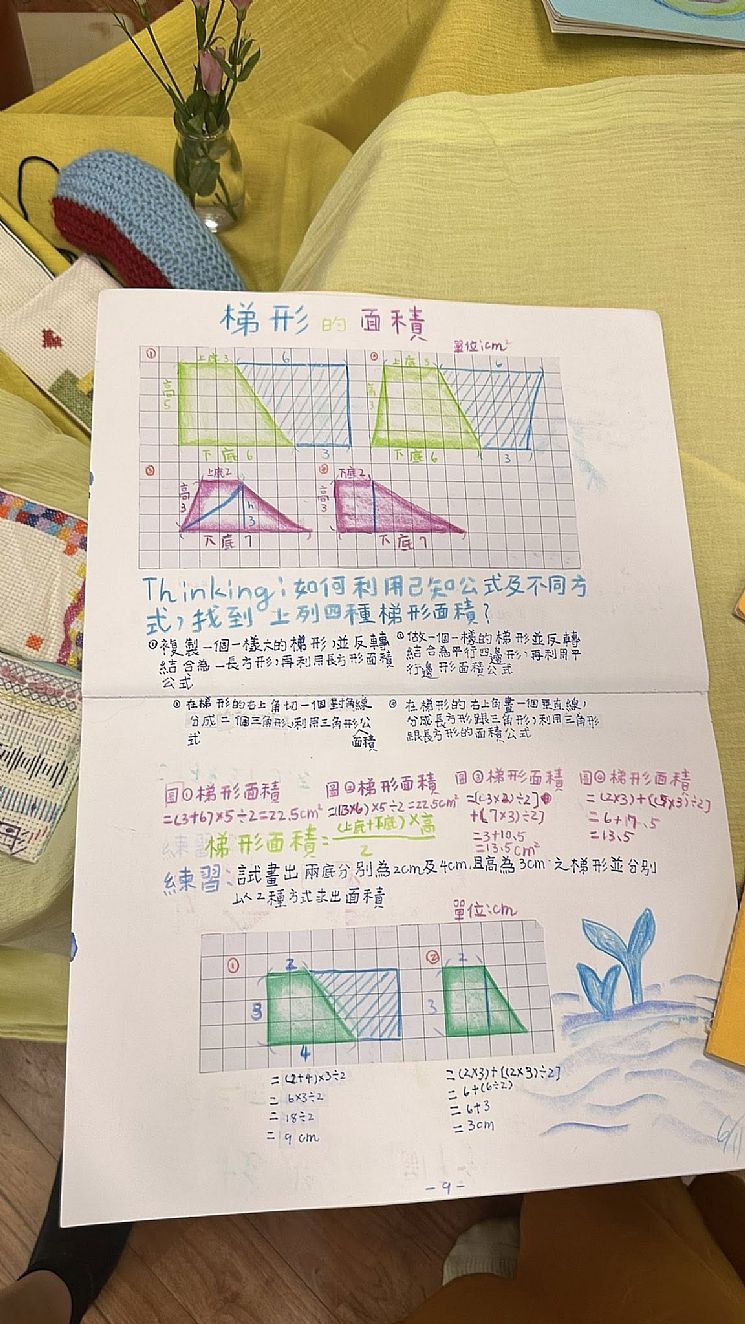 梯形的面積
單位:cm²
① 上底3 6
高5
下底6 3
② 上底3 6
下底6 3
③ 上底2
高3
h 3
下底7
④ 下底2
高3
下底7
Thinking:如何利用已知公式及不同方
式,找到上列四種梯形面積?
①複製一個一樣大的梯形,並反轉
結合為一長方形,再利用長方形面積
公式
②做一個一樣的梯形並反轉
結合為平行四邊形,再利用平
行邊形面積公式
③在梯形的右上角切一個對角線
分成二個三角形,利用三角形公
式 面積
④在梯形的右上角畫一個垂直線,
分成長方形跟三角形,利用三角形
跟長方形的面積公式
圖①梯形面積
=(3+6)×5÷2=22.5cm²
圖②梯形面積
×5÷2=22.5cm²
圖③梯形面積
+(7×3)÷2]
=3+10.5
=13.5cm²
圖④梯形面積
=(2×3)+[(5×3)÷2]
=13.5
梯形面積=(上底+下底)×高/2
練習:試畫出兩底分別為2cm及4cm,且高為3cm之梯形並分別
以2種方式求出面積
單位:cm
① 2
3
4
② 2
3
=(2+4)×3÷2
=6×3÷2
=18÷2
=9cm
=(2×3)+[(2×3)÷2]
=6+(6÷2)
=6+3
=3cm
6/11
-9-